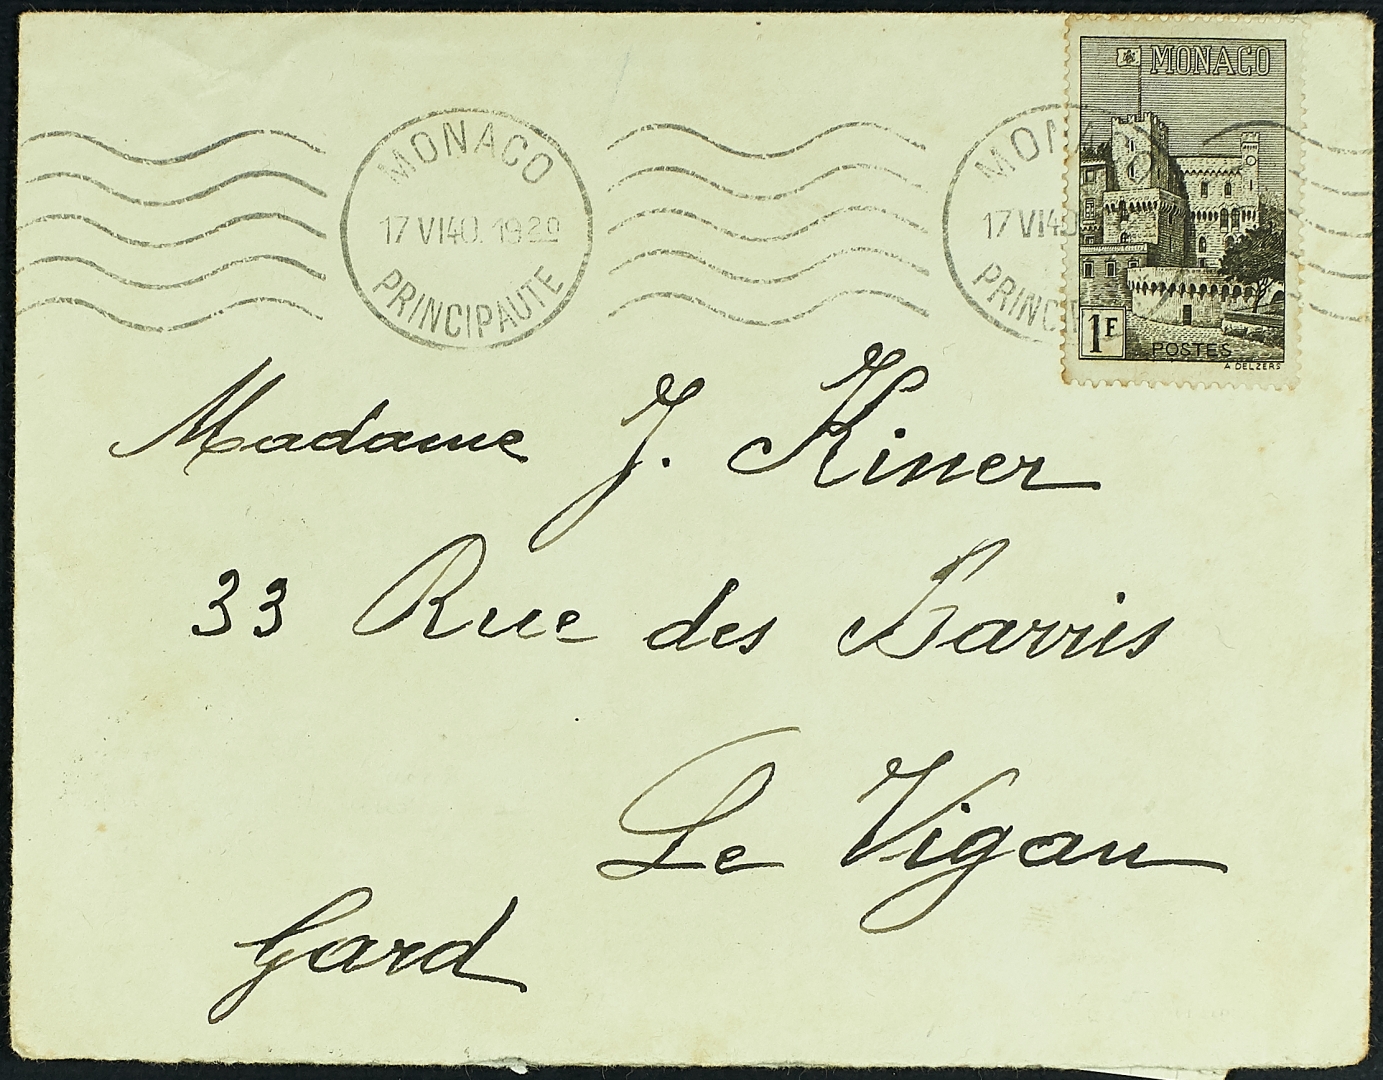 MONACO
17 VI 40. 19 20
PRINCIPAUTE
MONA
17 VI 40
PRINCI
MONACO
1F
POSTES
A DELZERS
Madame J. Kiner
33 Rue des Barris
Le Vigan
Gard